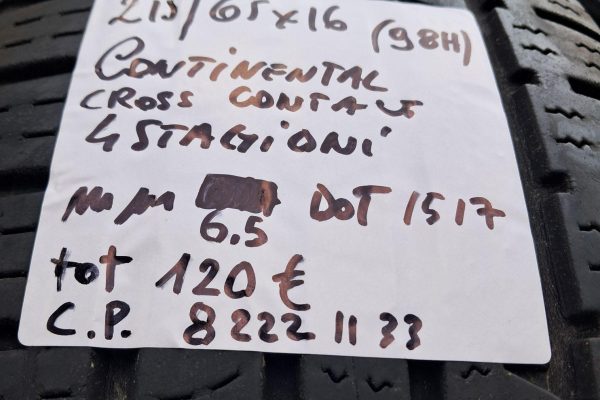 215/65x16 (98H)
CONTINENTAL
CROSS CONTACT
4 STAGIONI
mm
6.5 DOT 1517
tot 120 €
C.P. 8222 11 33